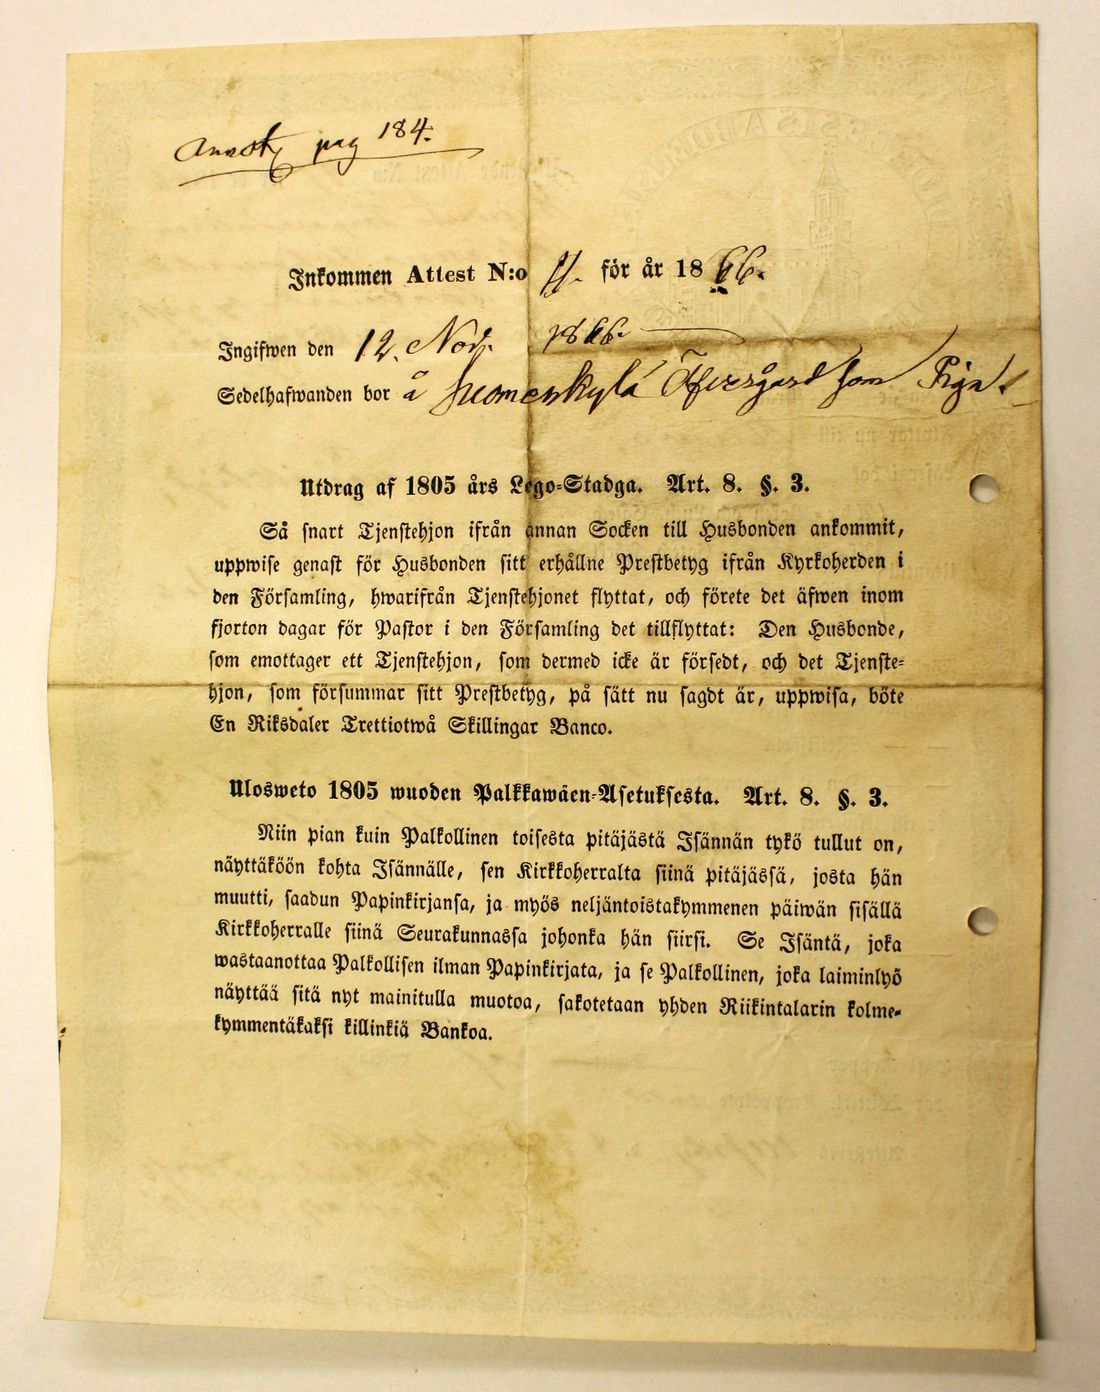 pag 184.
Inkommen Attest N:o 11. för år 1866.
Ingifwen den 12. Nov. 1866.
Sedelhafwanden bor å Suomenkylä Öfvergård som Piga.
Utdrag af 1805 års Lego-Stadga. Art. 8. §. 3.
Så snart Tjenstehjon ifrån annan Socken till Husbonden ankommit,
uppwise genast för Husbonden sitt erhållne Prestbetyg ifrån Kyrkoherden i
den Församling, hwarifrån Tjenstehjonet flyttat, och förete det äfwen inom
fjorton dagar för Pastor i den Församling det tillflyttat: Den Husbonde,
som emottager ett Tjenstehjon, som dermed icke är försedt, och det Tjenste-
hjon, som försummar sitt Prestbetyg, på sätt nu sagdt är, uppwisa, böte
En Riksdaler Trettiotwå Skillingar Banco.
Ulosweto 1805 wuoden Palkkawäen-Asetuksesta. Art. 8. §. 3.
Niin pian kuin Palkollinen toisesta pitäjästä Isännän tykö tullut on,
näyttäköön kohta Isännälle, sen Kirkkoherralta siinä pitäjässä, josta hän
muutti, saadun Papinkirjansa, ja myös neljäntoistakymmenen päiwän sisällä
Kirkkoherralle siinä Seurakunnassa johonka hän siirsi. Se Isäntä, joka
wastaanottaa Palkollisen ilman Papinkirjata, ja se Palkollinen, joka laiminlyö
näyttää sitä nyt mainitulla muotoa, sakotetaan yhden Riikintalarin kolme-
kymmentäkaksi killinkiä Bankoa.